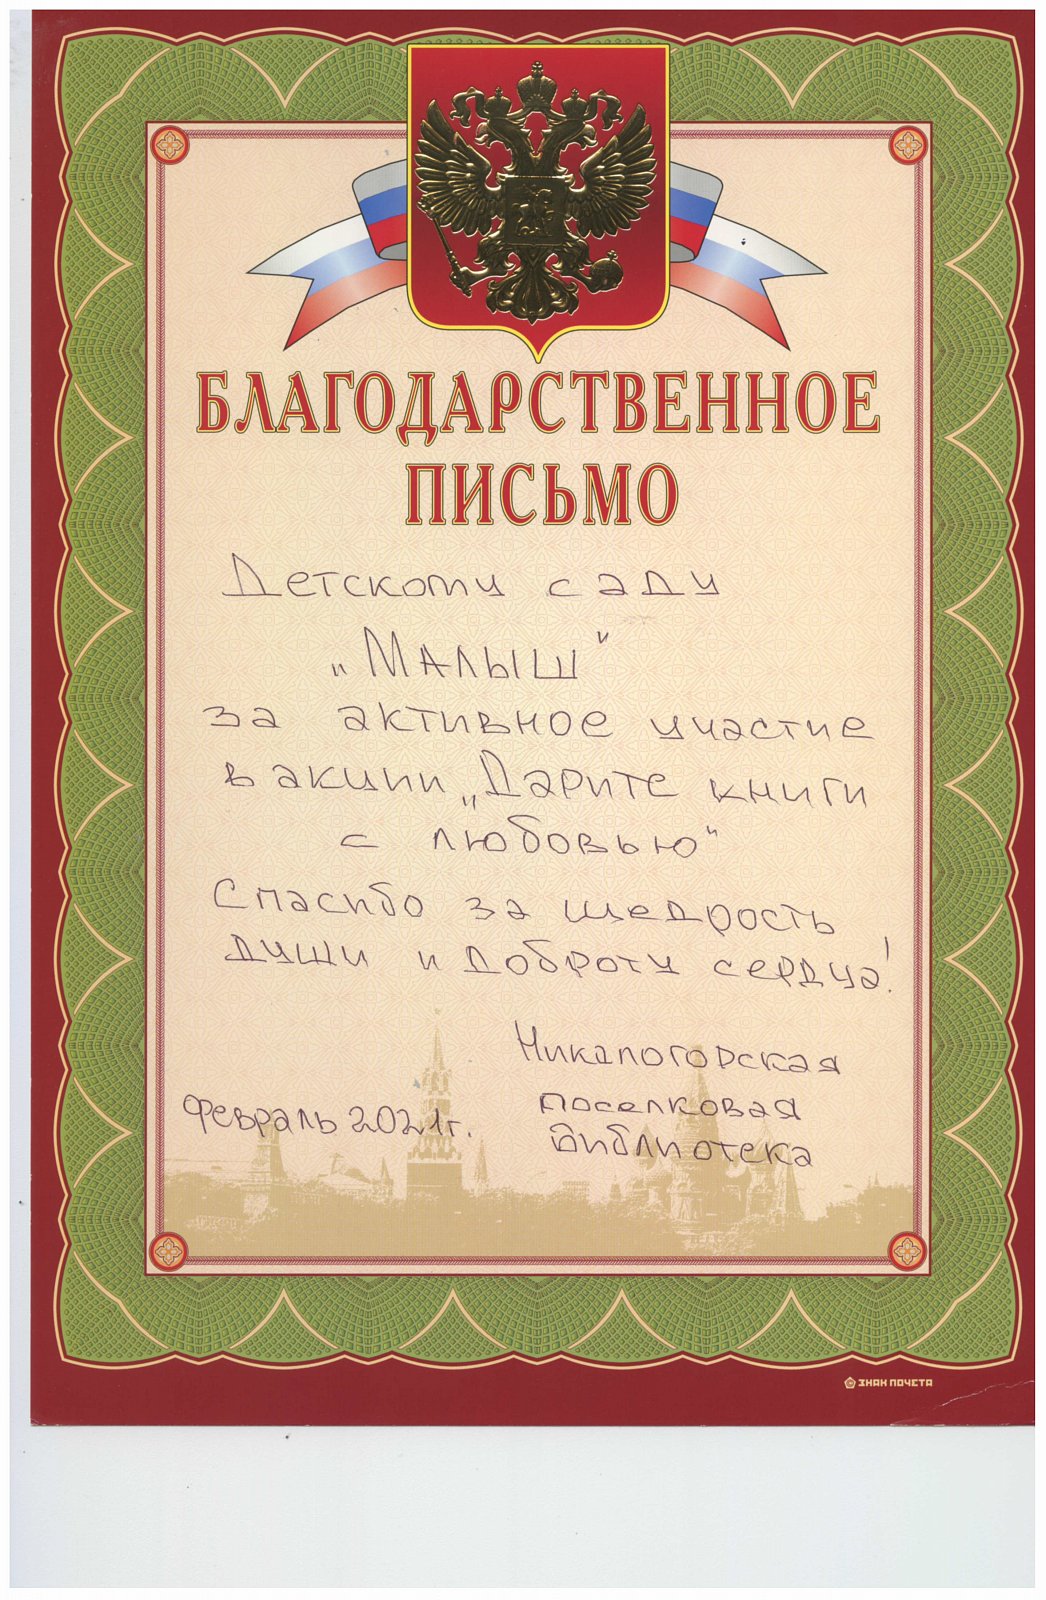 БЛАГОДАРСТВЕННОЕ
ПИСЬМО
Детскому саду
„Малыш"
за активное участие
в акции „Дарите книги
с любовью"
Спасибо за щедрость
души и доброту сердца!
Никологорская
поселковая
библиотека
Февраль 2021г.
ЗНАК ПОЧЕТА